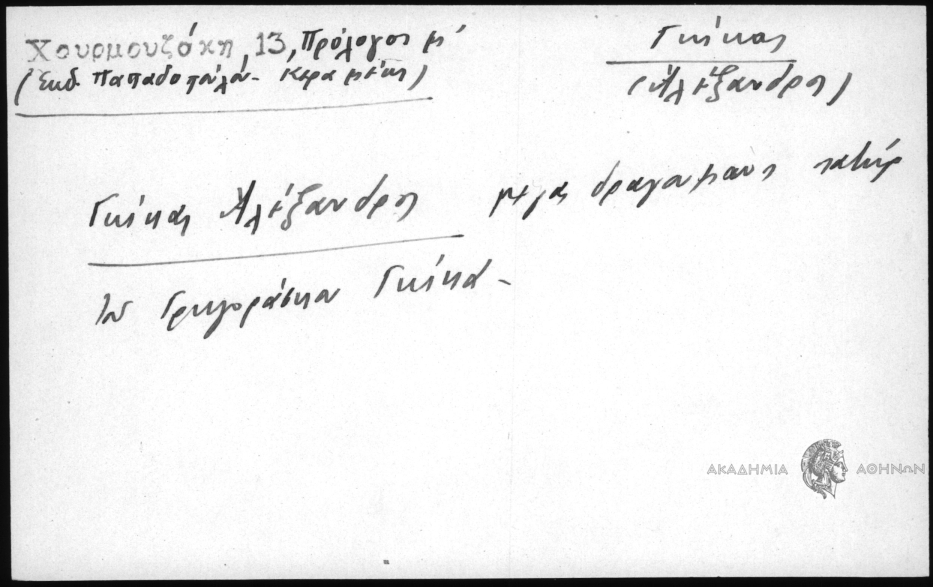 Χουρμουζάκη, 13, Πρόλογος μ'
(Ἐκδ. Παπαδοπούλου-Κεραμέως)
Γκίκας
(Ἀλέξανδρος)
Γκίκας Ἀλέξανδρος μέγας δραγομάνος πατὴρ
τοῦ Γρηγοράσκου Γκίκα -
ΑΚΑΔΗΜΙΑ ΑΘΗΝΩΝ